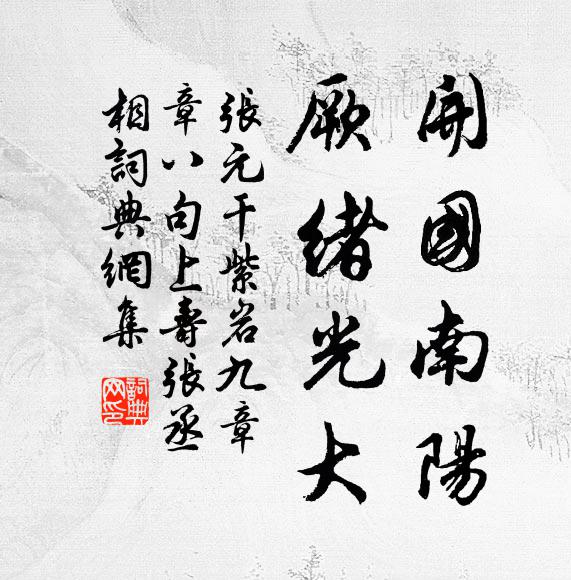 開國南陽
厥緒光大
張元干紫岩九章
章八句上壽張丞
相詞典網集
詞典网印